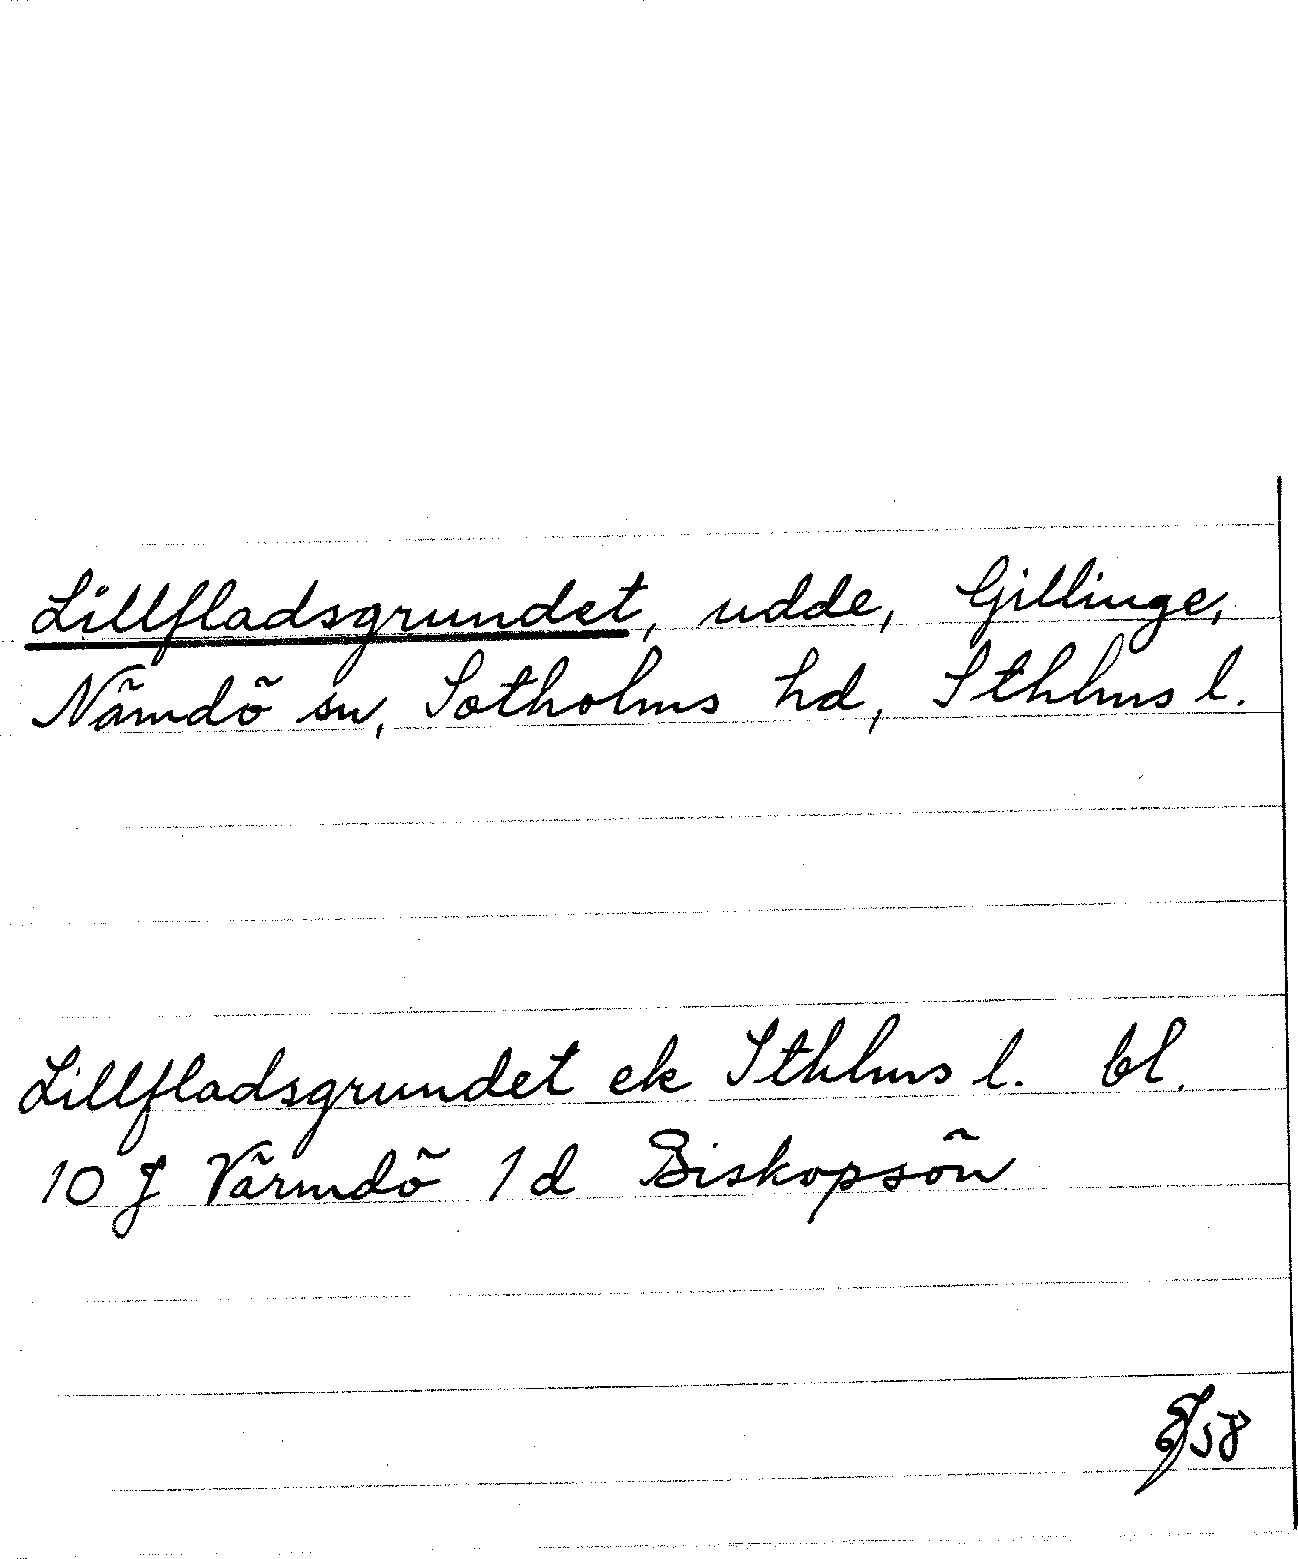 Lillfladsgrundet, udde, Gillinge,
Nämdö sn, Sotholms hd, Sthlms l.
Lillfladsgrundet ek Sthlms l. bl.
10 J Värmdö 1 d Biskopsön
58